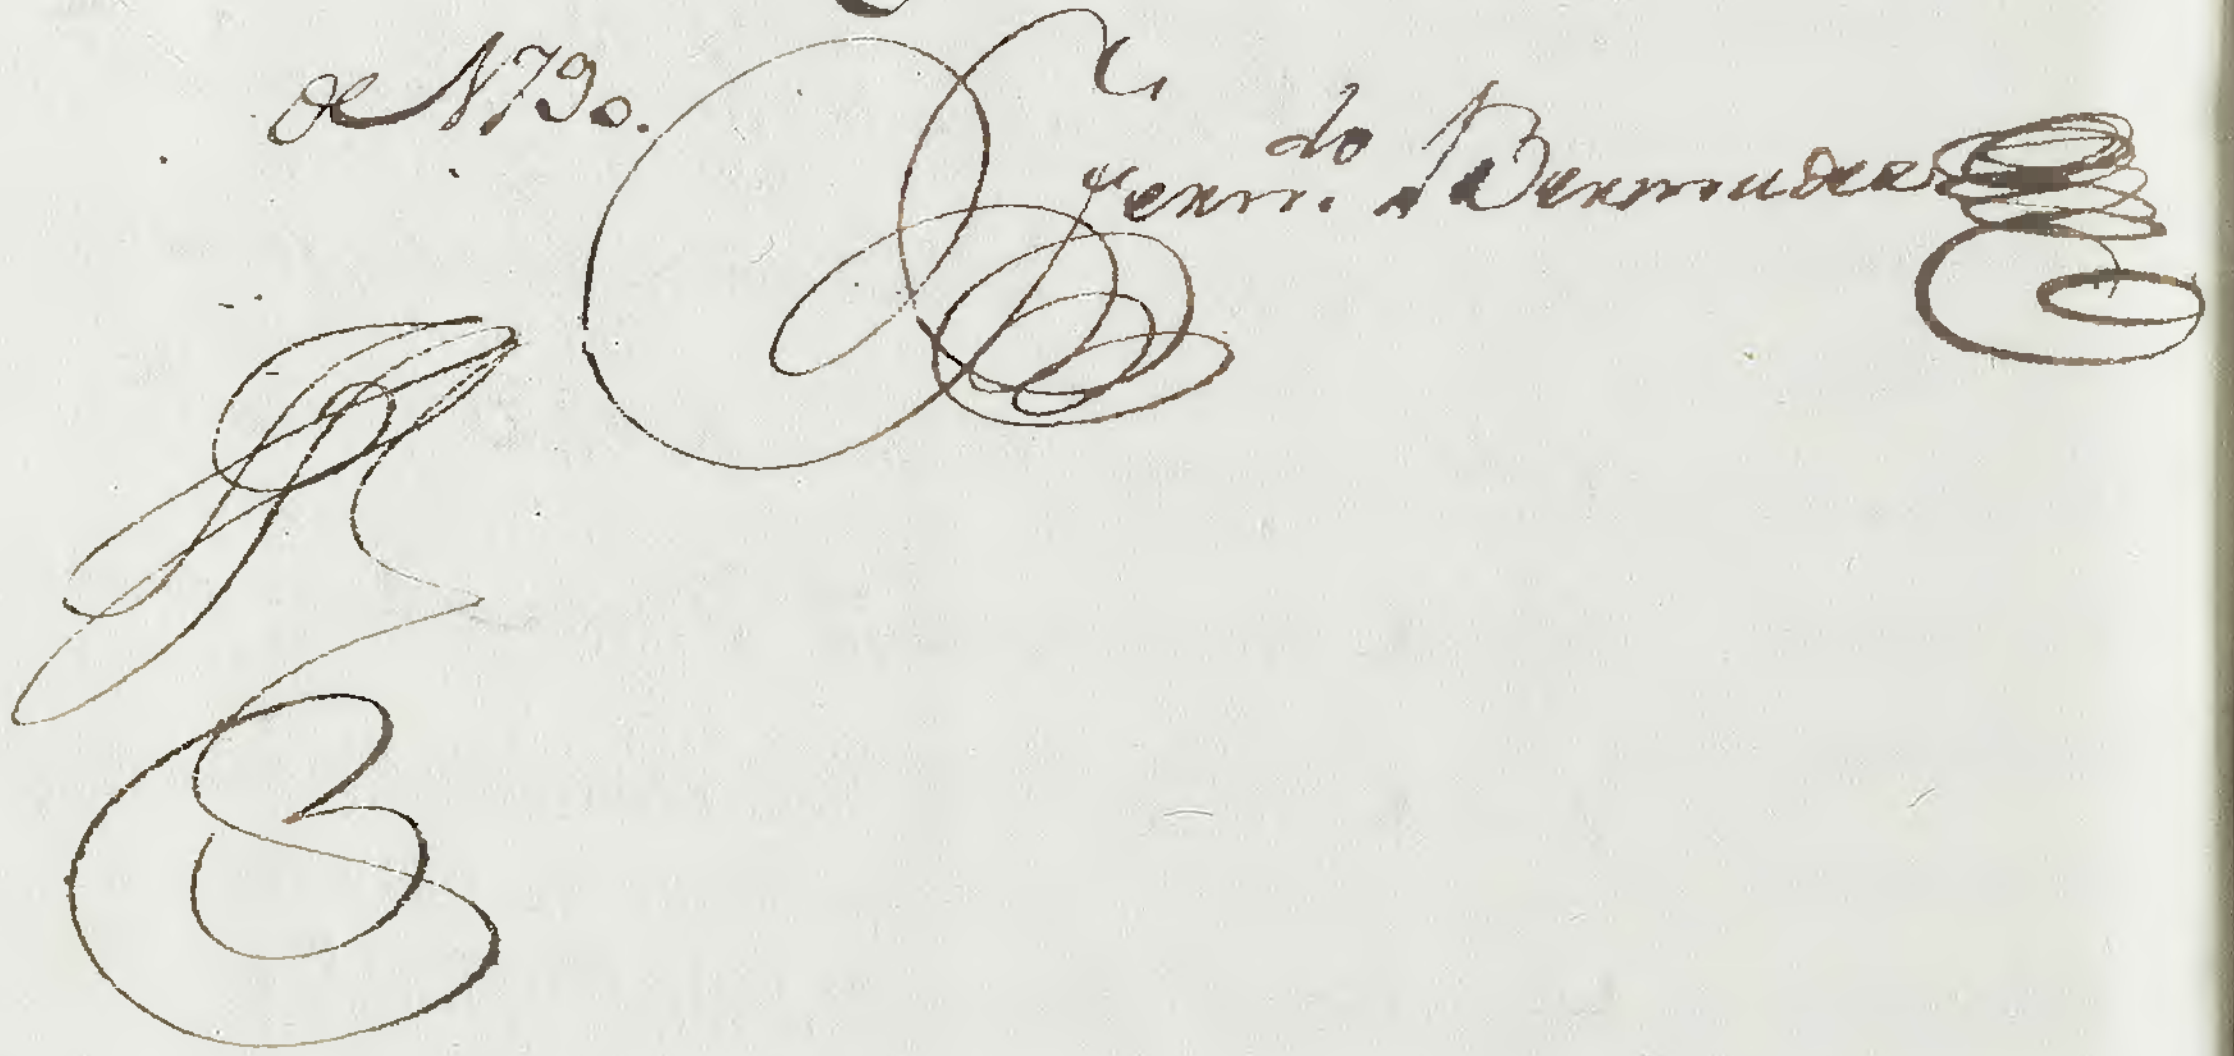 de 1790.
Fern.do Bermudez